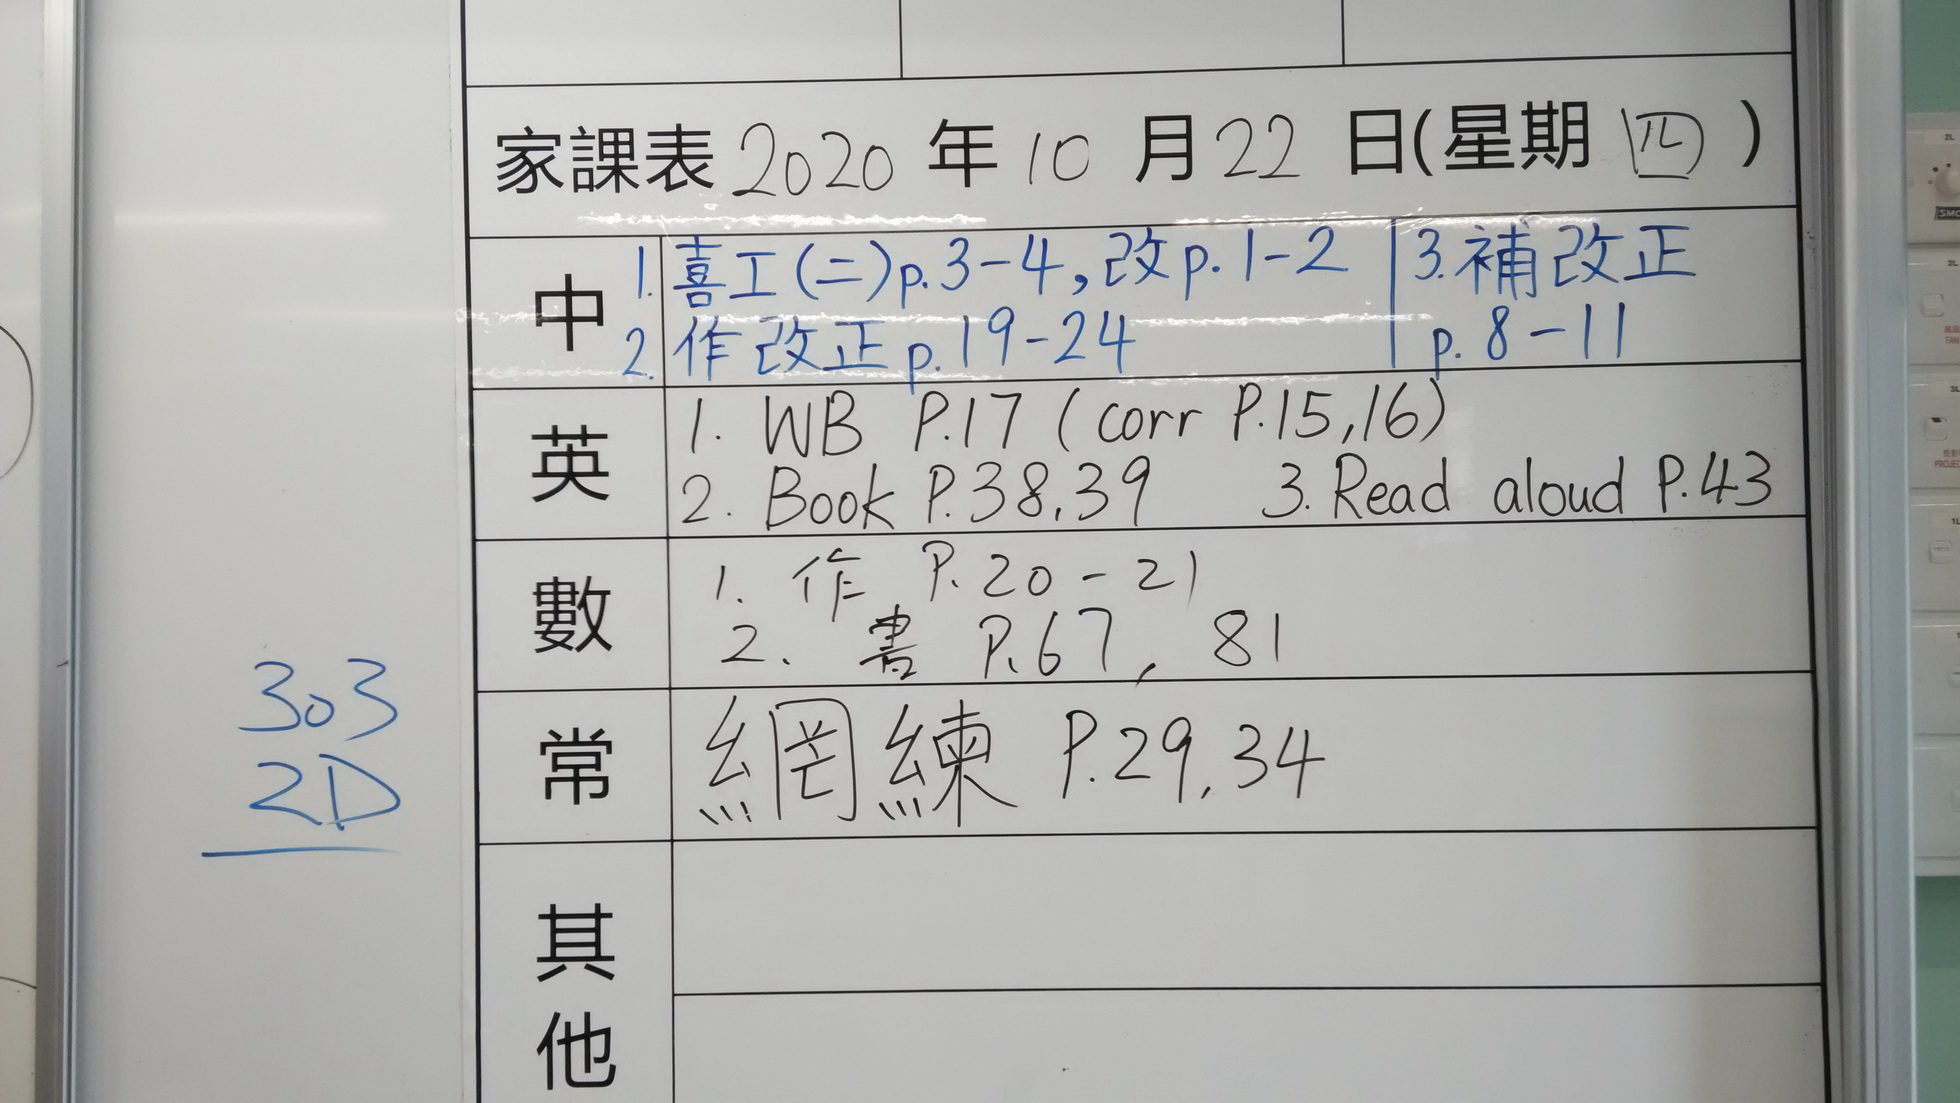 家課表 2020 年 10 月 22 日(星期 四)
中
1. 喜工(二)p.3-4,改p.1-2
2. 作改正p.19-24
3. 補改正
p.8-11
英
1. WB P.17 (corr P.15,16)
2. Book P.38,39 3. Read aloud P.43
數
1. 作 P.20-21
2. 書 P.67, 81
常
網練 P.29,34
其
他
303
2D